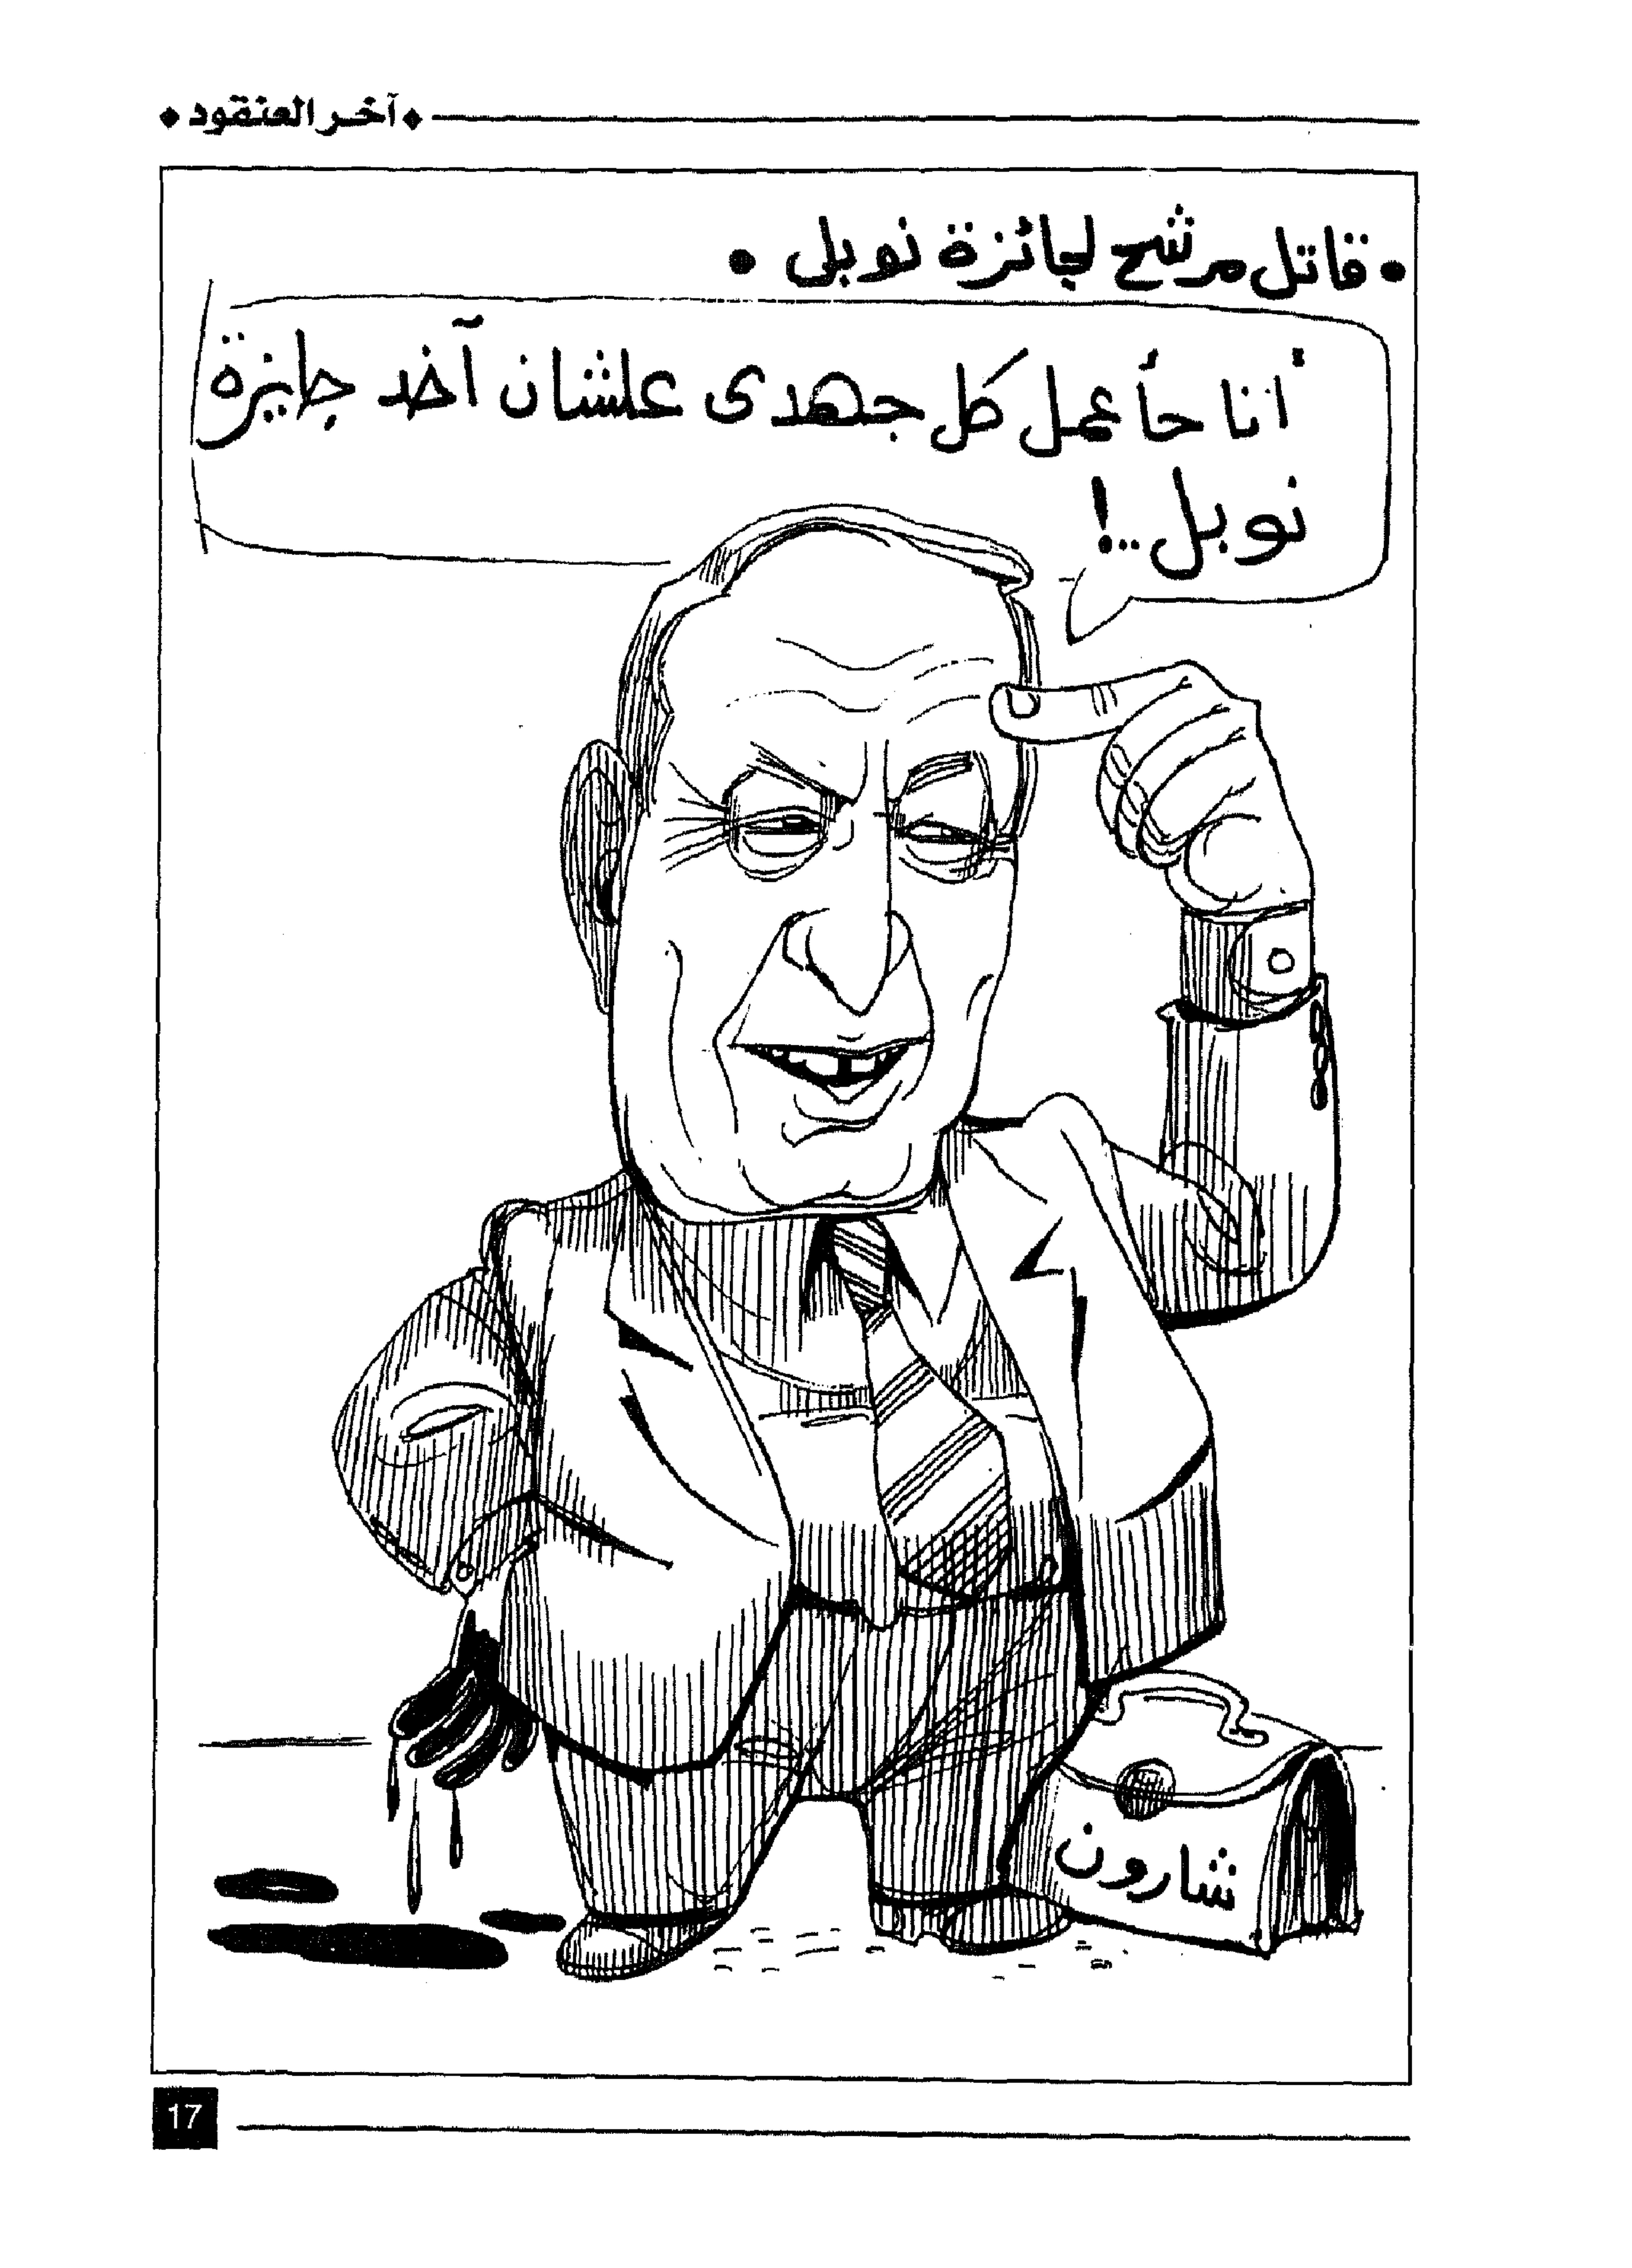 آخر العنقود
• قاتل مرشح لجائزة نوبل •
أنا حأعمل كل جهدى علشان آخد جايزة
نوبل..!
شارون
17